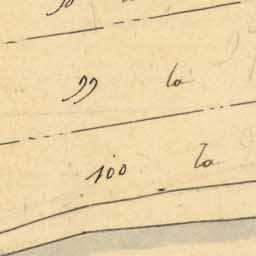 99 la
100 la